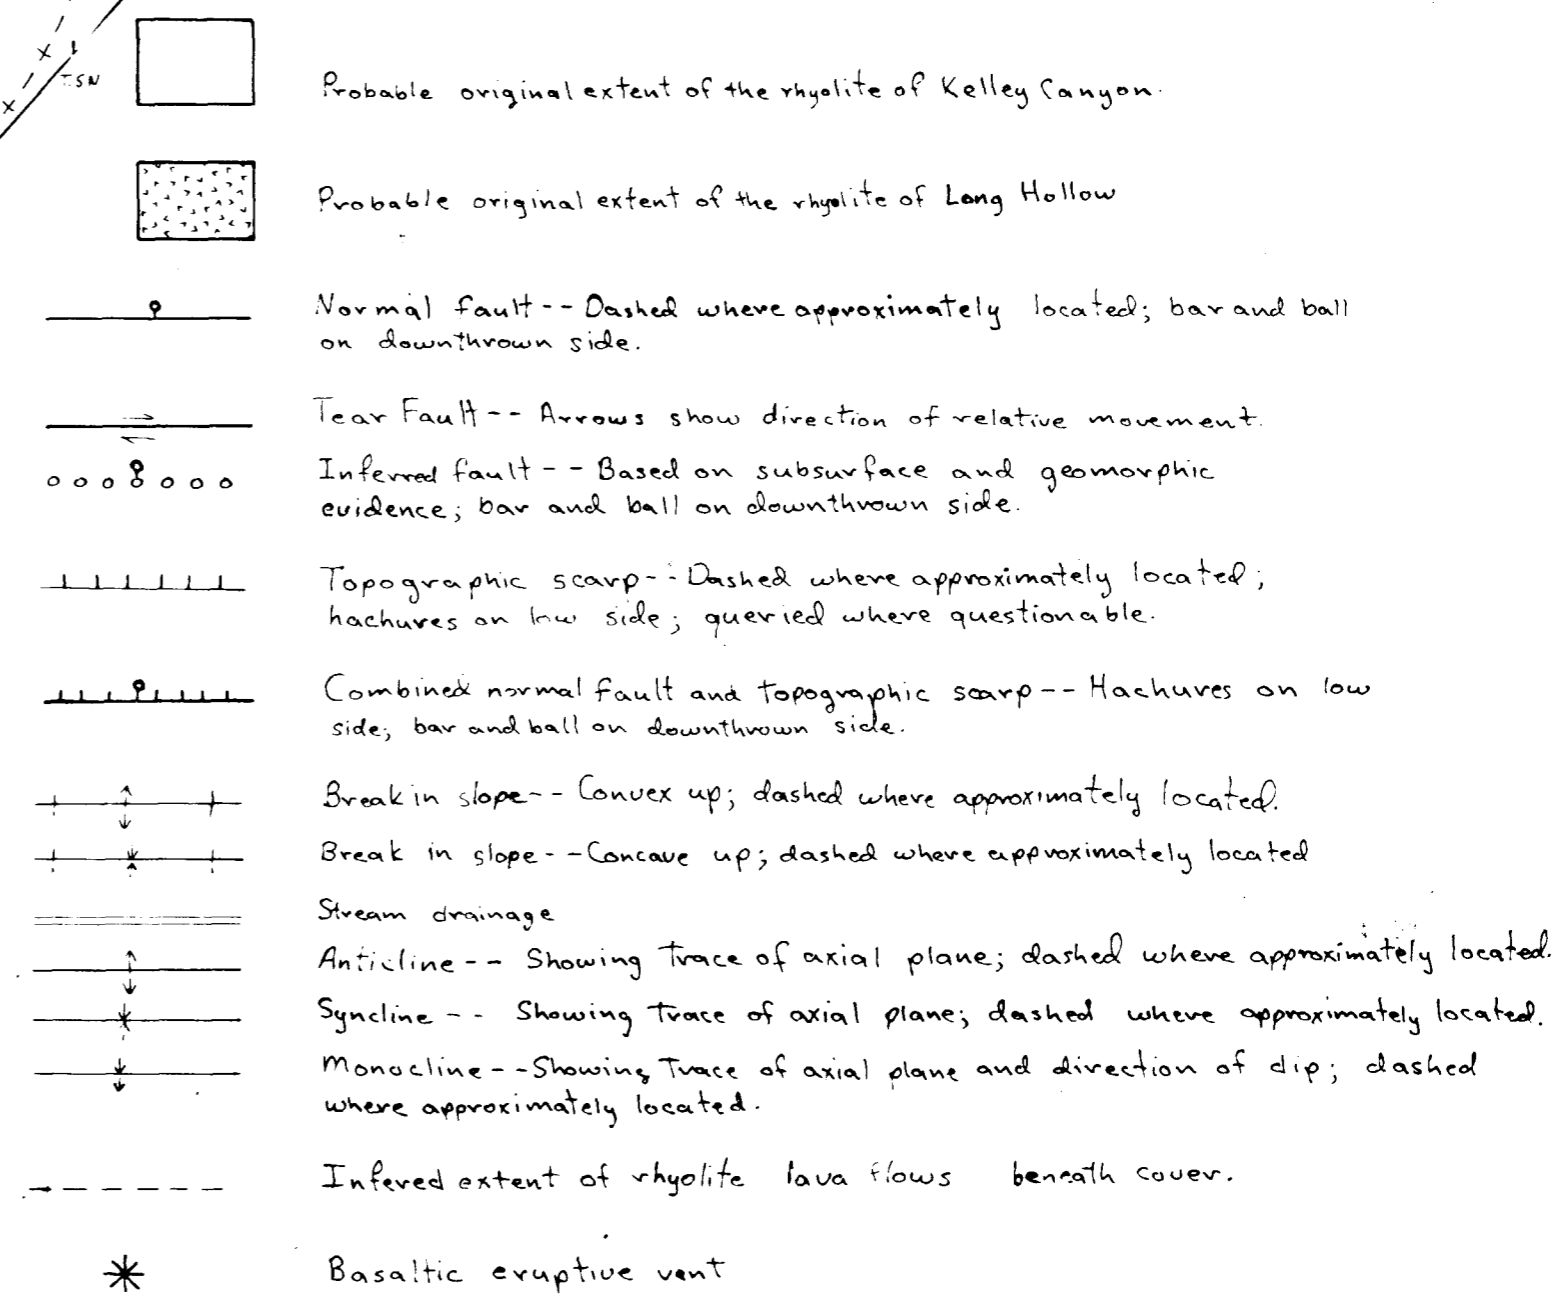 T.SN
Probable original extent of the rhyolite of Kelley Canyon.
Probable original extent of the rhyolite of Long Hollow
Normal fault-- Dashed where approximately located; bar and ball
on downthrown side.
Tear Fault-- Arrows show direction of relative movement.
Inferred fault-- Based on subsurface and geomorphic
evidence; bar and ball on downthrown side.
Topographic scarp-- Dashed where approximately located;
hachures on low side; queried where questionable.
Combined normal fault and topographic scarp-- Hachures on low
side; bar and ball on downthrown side.
Break in slope-- Convex up; dashed where approximately located.
Break in slope--Concave up; dashed where approximately located
Stream drainage
Anticline-- Showing Trace of axial plane; dashed where approximately located.
Syncline-- Showing Trace of axial plane; dashed where approximately located.
Monocline--Showing Trace of axial plane and direction of dip; dashed
where approximately located.
Infered extent of rhyolite lava flows beneath cover.
Basaltic eruptive vent